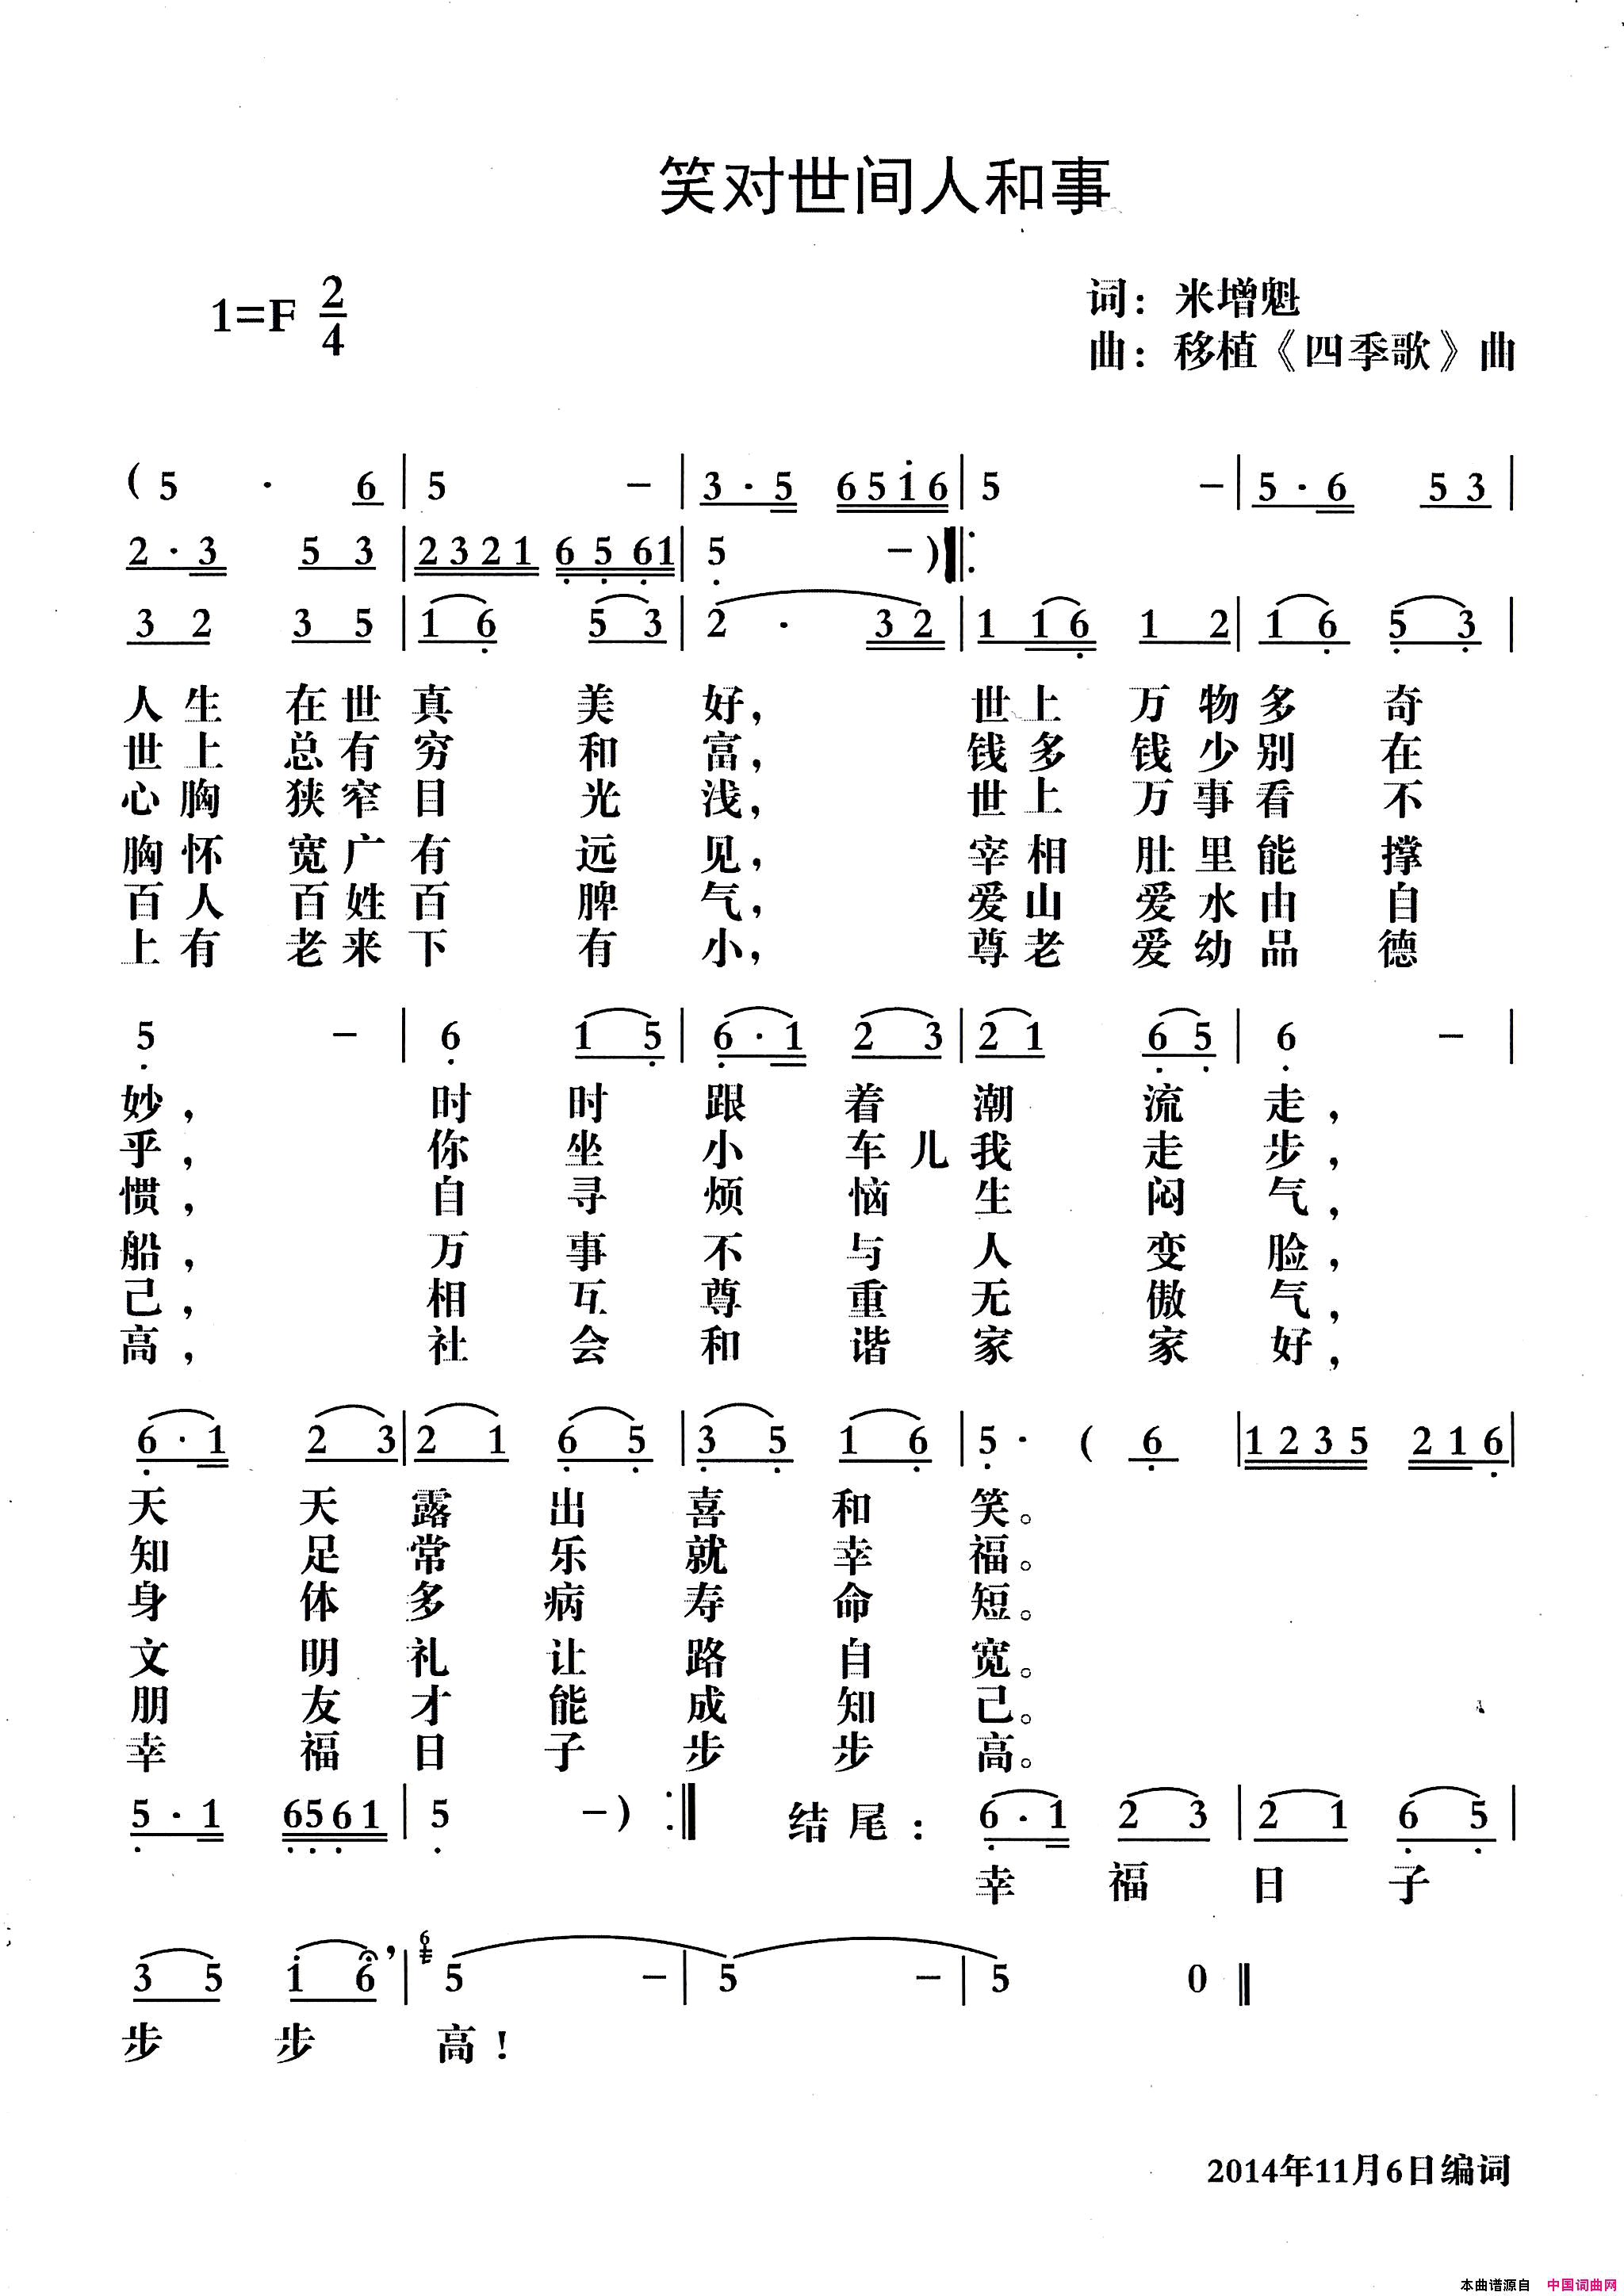 笑对世间人和事
1=F 2/4
词：米增魁
曲：移植《四季歌》曲
( 5 · 6 | 5 － | 3 · 5 6 5 1 6 | 5 － | 5 · 6 5 3 |
2 · 3 5 3 | 2 3 2 1 6 5 6 1 | 5 － ) ‖:
3 2 3 5 | 1 6 5 3 | 2 · 3 2 | 1 1 6 1 2 | 1 6 5 3 |
人生 在世真 美 好， 世上 万物多 奇
世上 总有穷 和 富， 钱多 钱少别 在
心胸 狭窄目 光 浅， 世上 万事看 不
胸怀 宽广有 远 见， 宰相 肚里能 撑
百人 百姓百 脾 气， 爱山 爱水由 自
上有 老来下 有 小， 尊老 爱幼品 德
5 － | 6 1 5 | 6 · 1 2 3 | 2 1 6 5 | 6 － |
妙， 时 时 跟 着 潮 流 走，
乎， 你 坐 小 车儿我 走 步，
惯， 自 寻 烦 恼 生 闷 气，
船， 万 事 不 与 人 变 脸，
己， 相 互 尊 重 无 傲 气，
高， 社 会 和 谐 家 家 好，
6 · 1 2 3 | 2 1 6 5 | 3 5 1 6 | 5 · ( 6 | 1 2 3 5 2 1 6 |
天 天 露 出 喜 和 笑。
知 足 常 乐 就 幸 福。
身 体 多 病 寿 命 短。
文 明 礼 让 路 自 宽。
朋 友 才 能 成 知 己。
幸 福 日 子 步 步 高。
5 · 1 6 5 6 1 | 5 － ) :‖ 结尾： 6 · 1 2 3 | 2 1 6 5 |
幸 福 日 子
3 5 1 6 ’ | 6 5 － | 5 － | 5 0 ‖
步 步 高！
2014年11月6日编词
本曲谱源自 中国词曲网